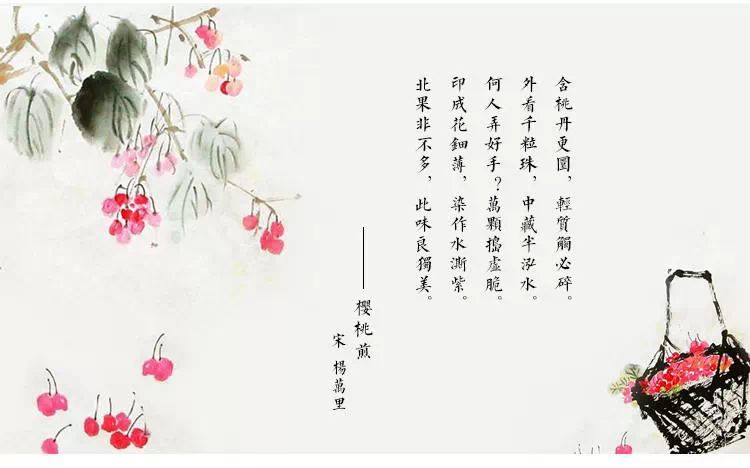 含桃丹更圜，輕質觸必碎。
外看千粒珠，中藏半泓水。
何人弄好手？萬顆搗虛脆。
印成花鈿薄，染作水澌紫。
北果非不多，此味良獨美。
——櫻桃煎
宋 楊萬里